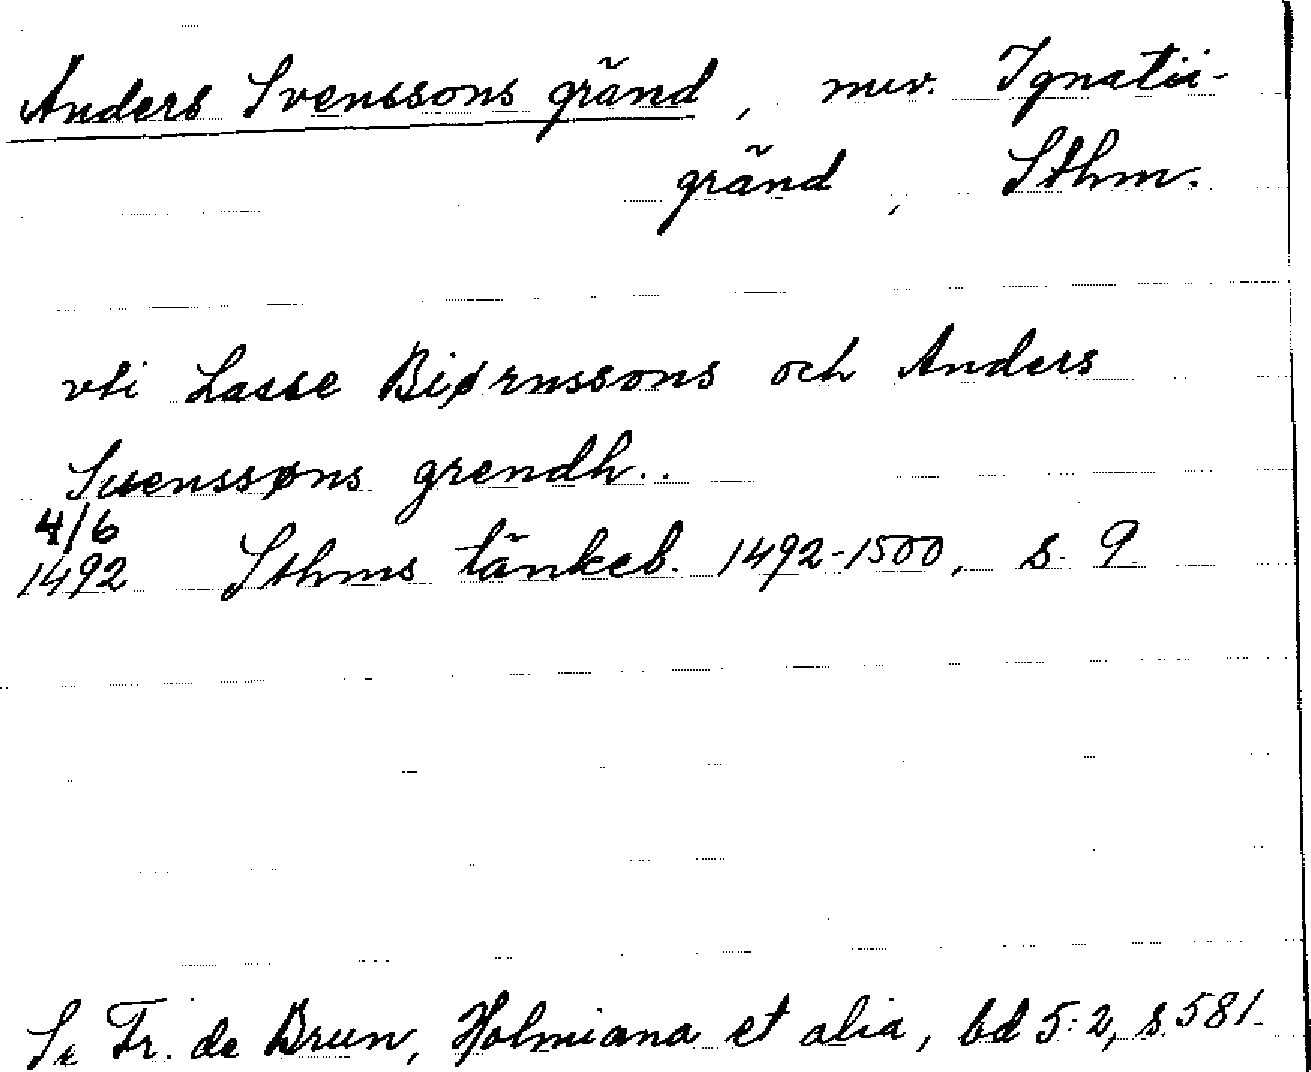 Anders Svenssons gränd, nuv. Ignatii-
gränd, Sthm.
vti Lasse Biørnssons och Anders
Suenssøns grendh..
4/6
1492 Sthms tänkeb. 1492-1500, s. 9
Se Fr. de Brun, Holmiana et alia, bd 5:2, s. 581